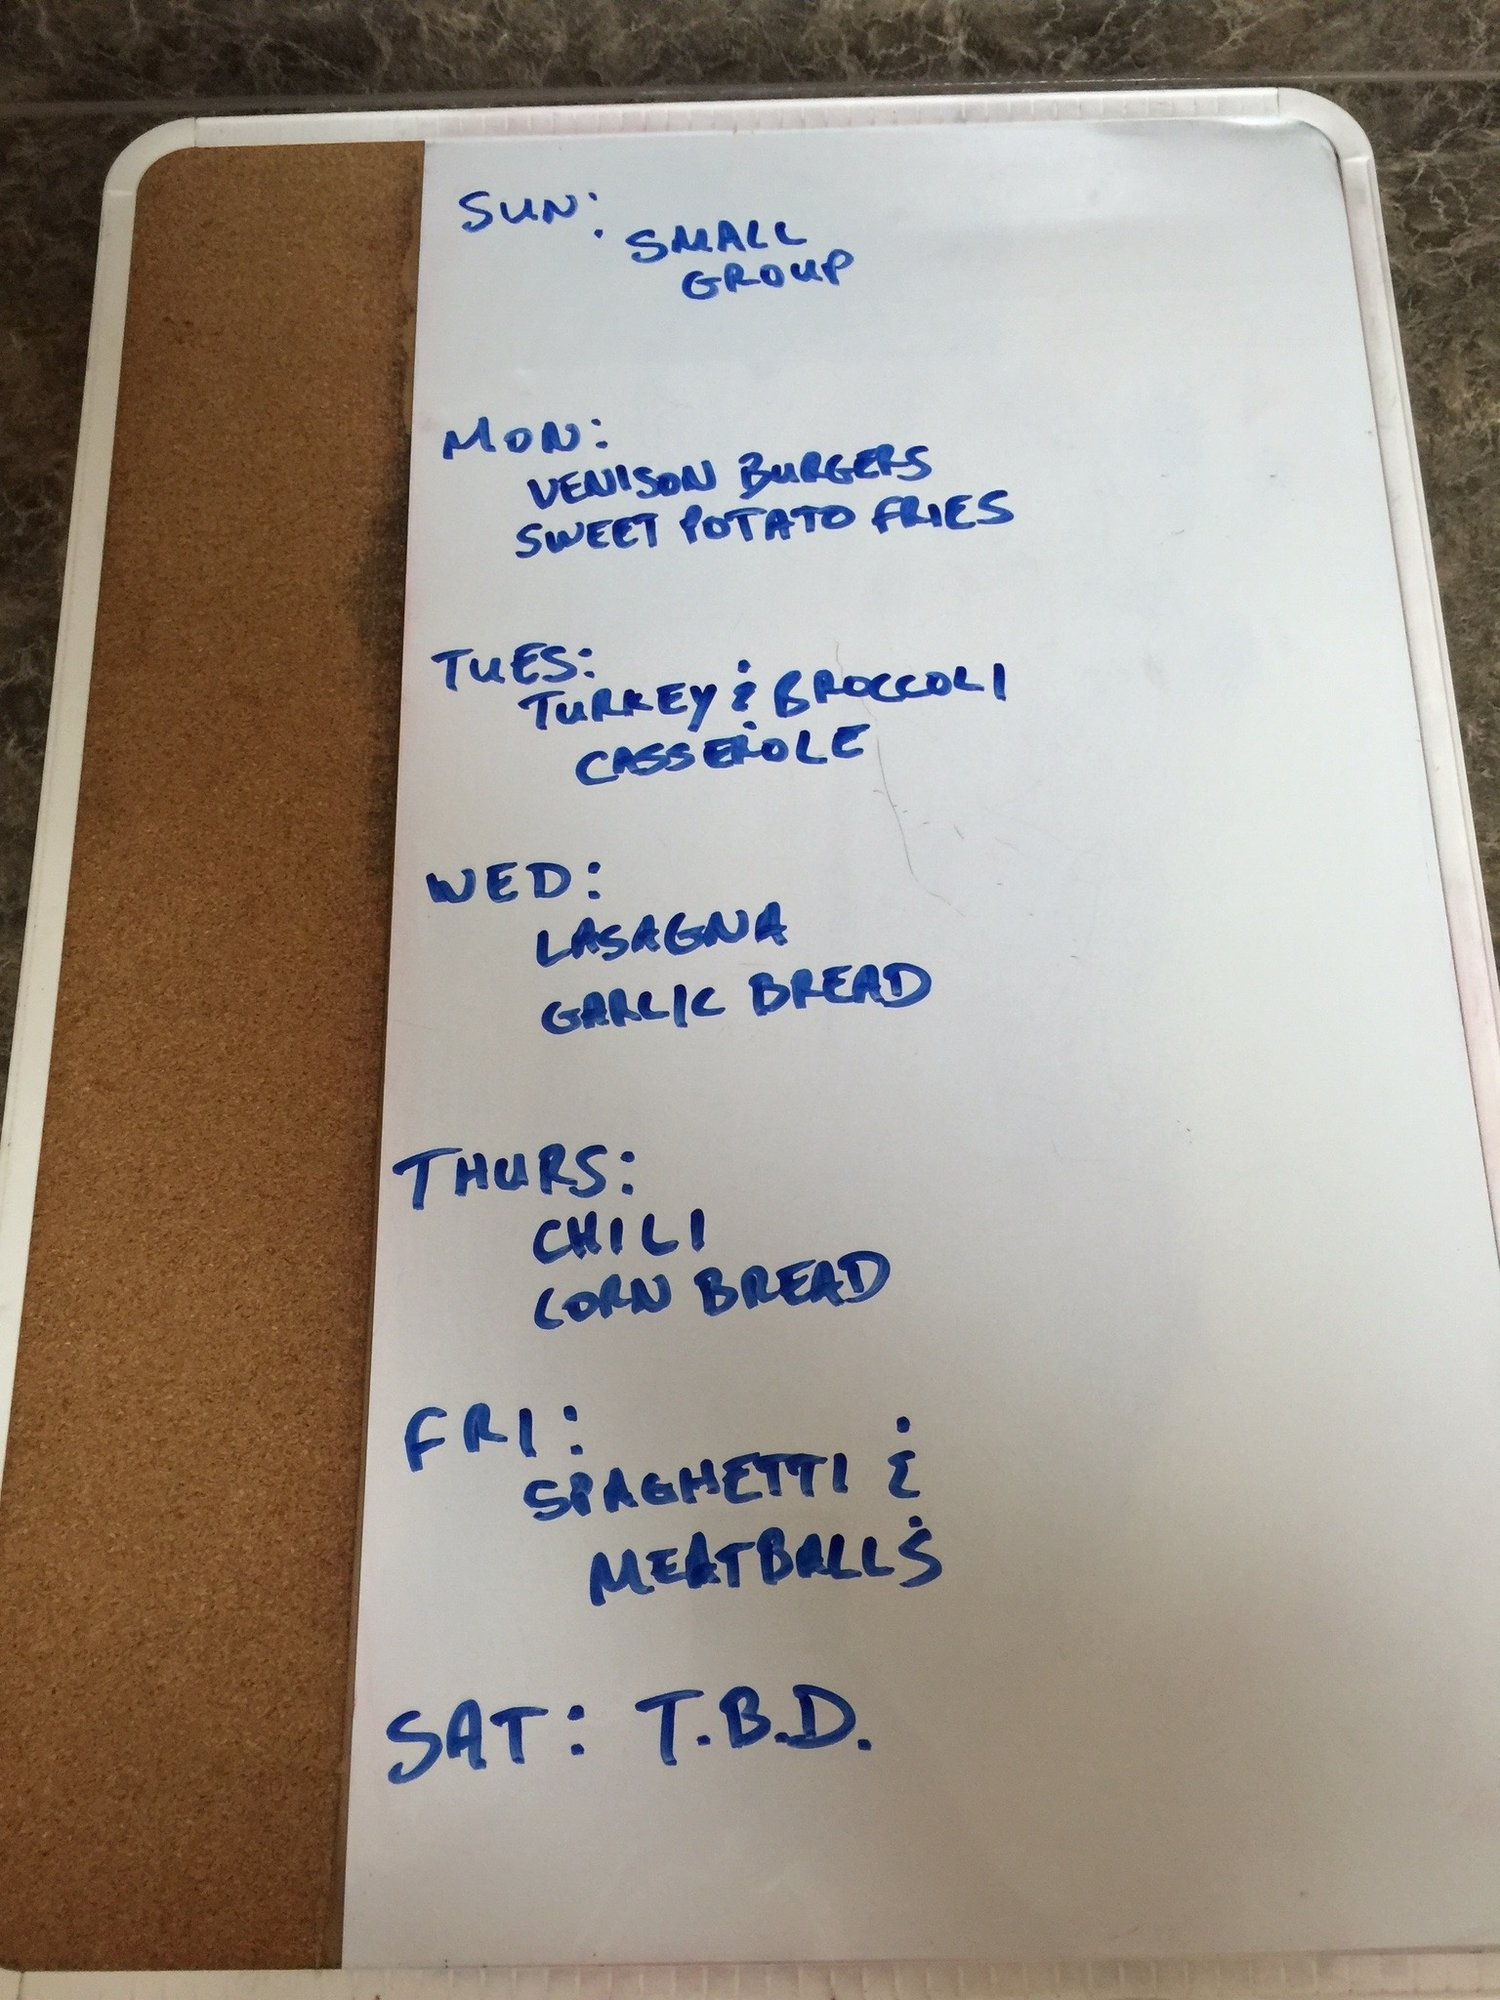 SUN:
SMALL
GROUP
MON:
VENISON BURGERS
SWEET POTATO FRIES
TUES:
TURKEY & BROCCOLI
CASSEROLE
WED:
LASAGNA
GARLIC BREAD
THURS:
CHILI
CORN BREAD
FRI:
SPAGHETTI &
MEATBALLS
SAT: T.B.D.